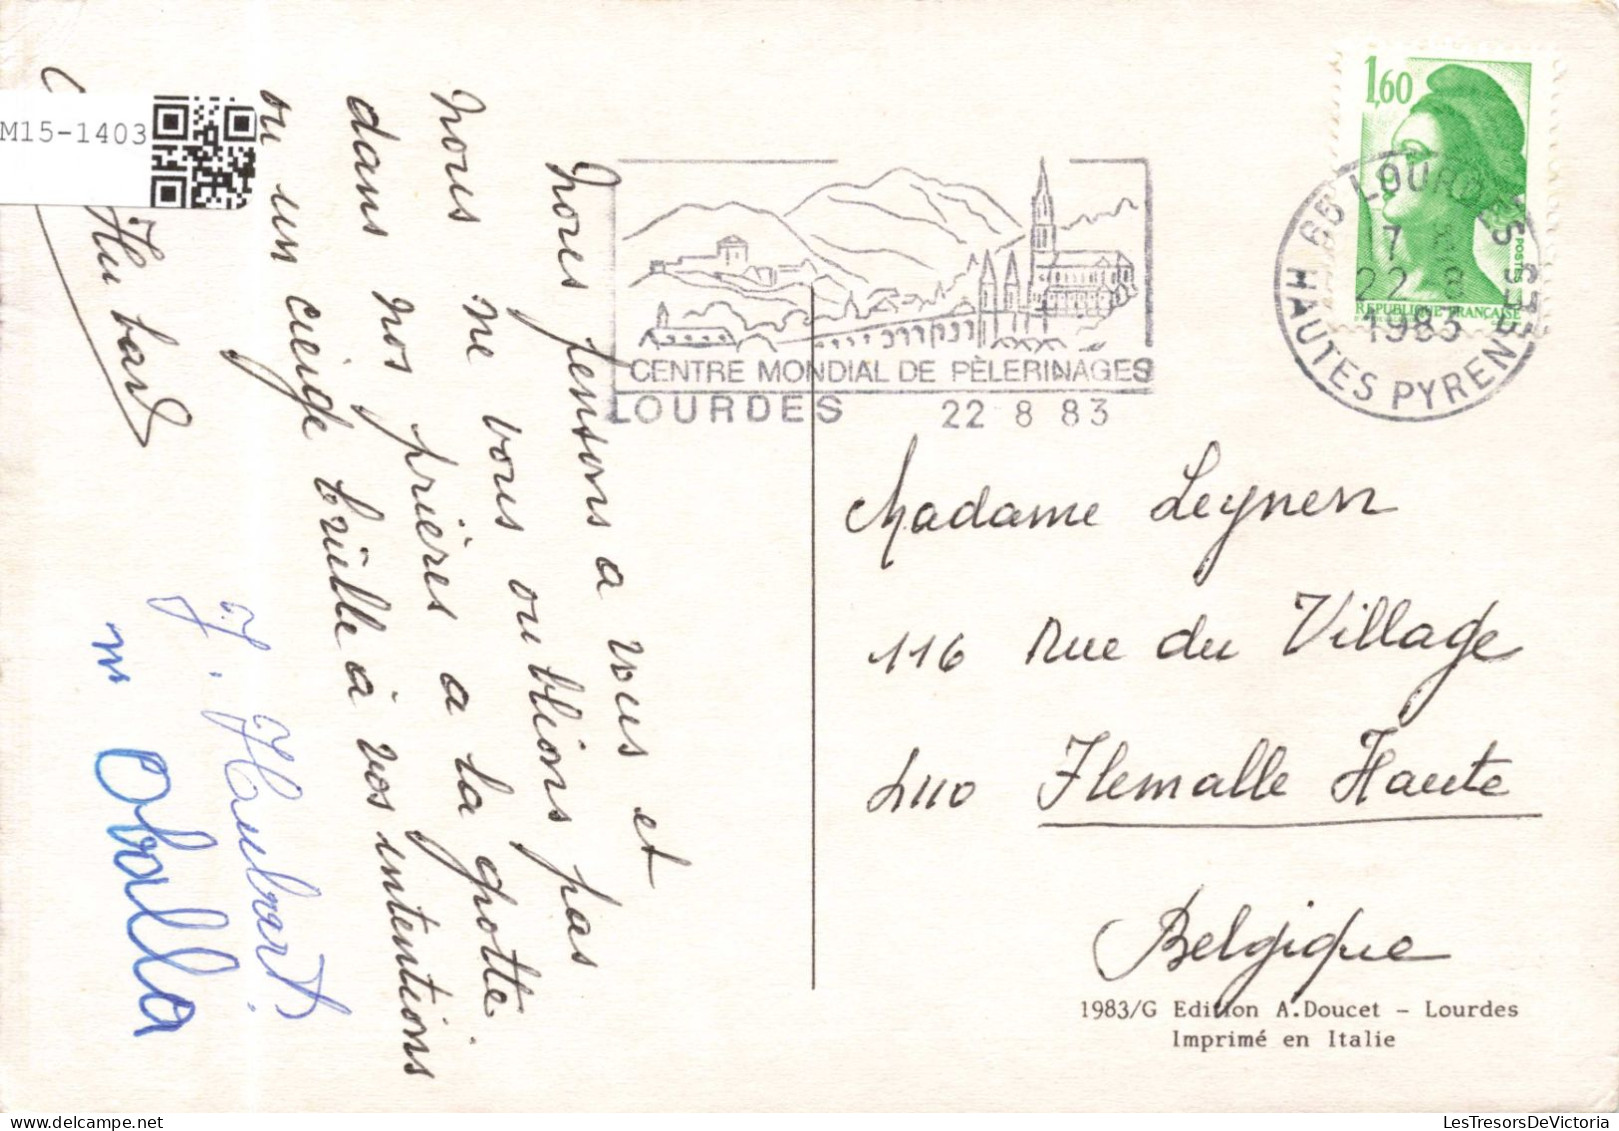 M15-1403
Nous pensons a vous et
nous ne vous oublions pas
dans nos prières a la grotte
ou un cierge brûlle à vos intentions
Hubart
J. Hubart.
m Oballa
1,60
POSTES
REPUBLIQUE FRANÇAISE
65 LOURDES
17 H
22 8
1983
HAUTES PYRENEES
CENTRE MONDIAL DE PÈLERINAGES
LOURDES 22 8 83
Madame Leynen
116 Rue du Village
4110 Flemalle Haute
Belgique
1983/G Edition A.Doucet - Lourdes
Imprimé en Italie
LesTresorsDeVictoria